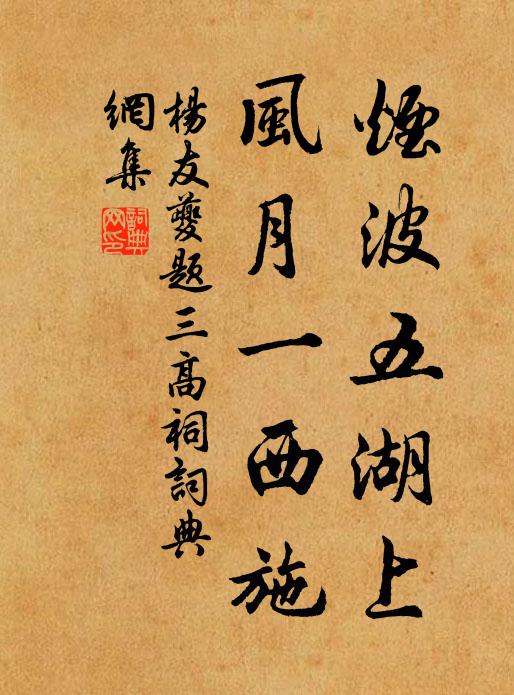 煙波五湖上
風月一西施
楊友夔題三高祠詞典
網集
詞典
网印